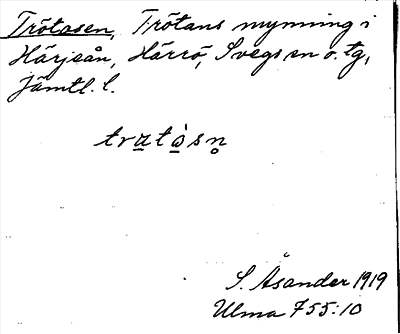 Trötåsen, Trötans mynning i
Härjeån, Härrö, Svegs sn o. tg,
Jämtl. l.
tratåsn
S. Åsander 1919
Ulma 755:10